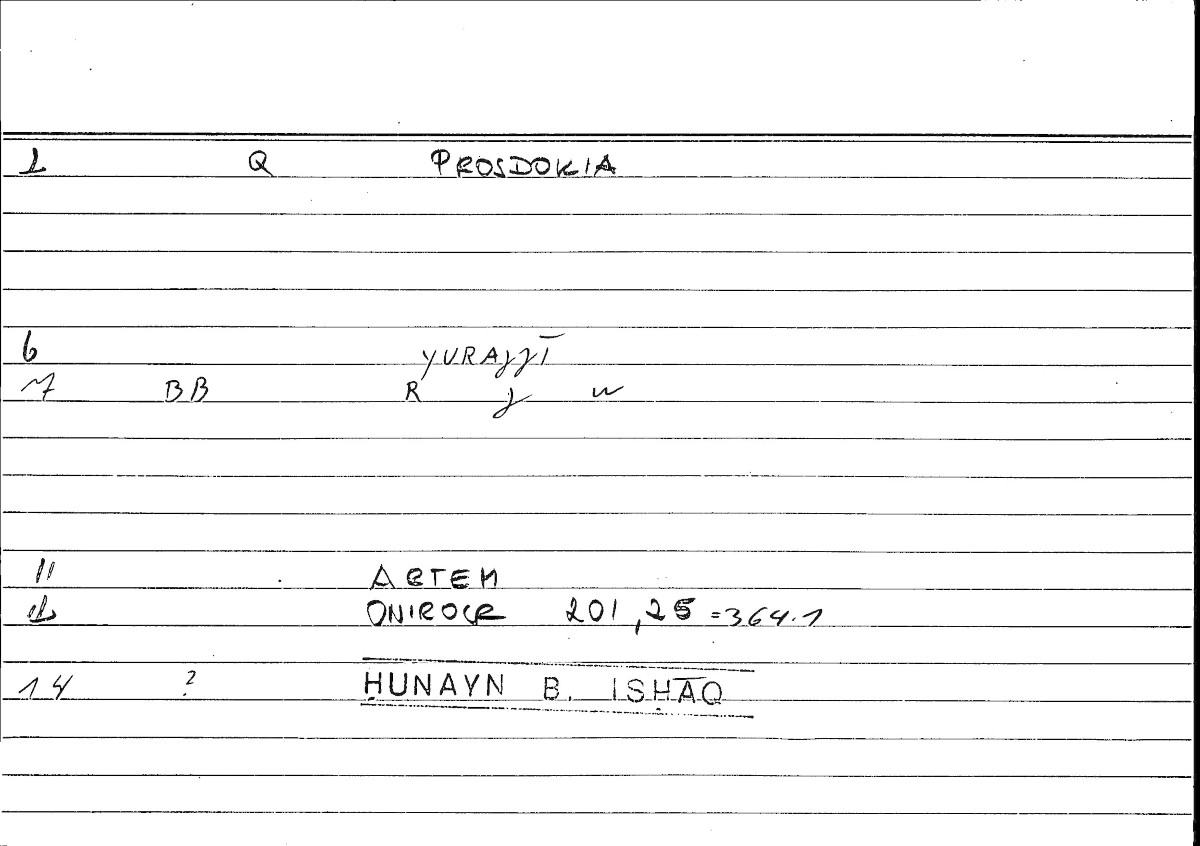 1 Q PROSDOKIA
6 YURAJJĪ
7 BB R J W
11 ARTEM
12 ONIROCR 201,25 =364.1
14 ? ḤUNAYN B. ISḤĀQ